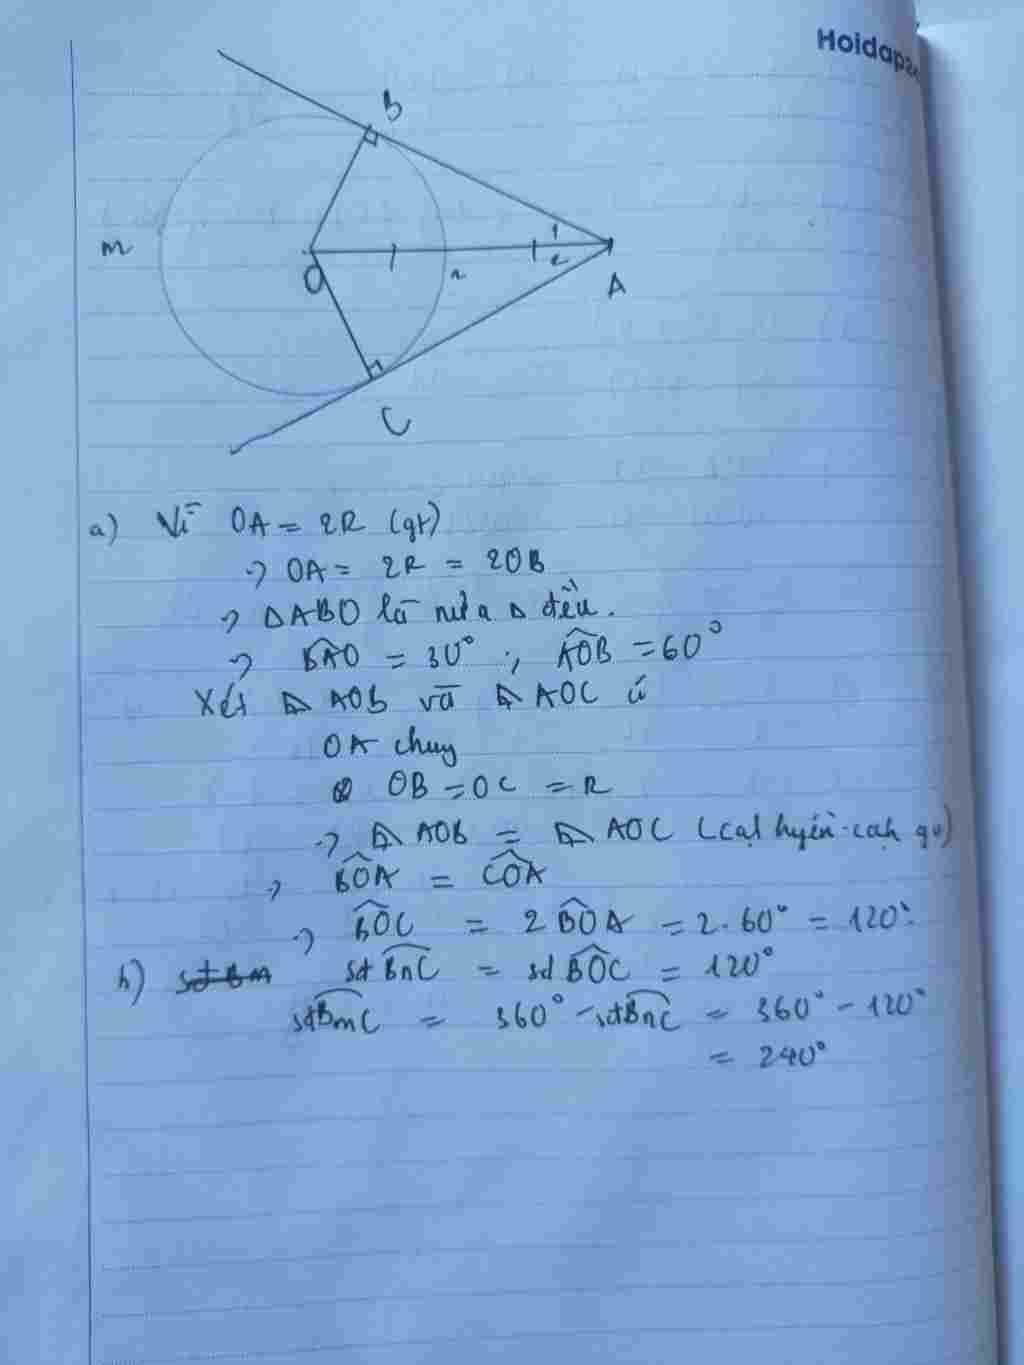 Hoidap
B
m
O
n
1
2
A
C
a) Vì OA = 2R (gt)
=> OA = 2R = 2OB
=> ΔABO là nửa Δ đều.
=> BAO = 30° ; AOB = 60°
Xét Δ AOB và Δ AOC có
OA chung
OB = OC = R
=> Δ AOB = Δ AOC (cạnh huyền-cạnh gv)
=> BOA = COA
=> BOC = 2 BOA = 2.60° = 120°.
b) sđ Bm sđ BnC = sđ BOC = 120°
sđBmC = 360° - sđBnC = 360° - 120°
= 240°